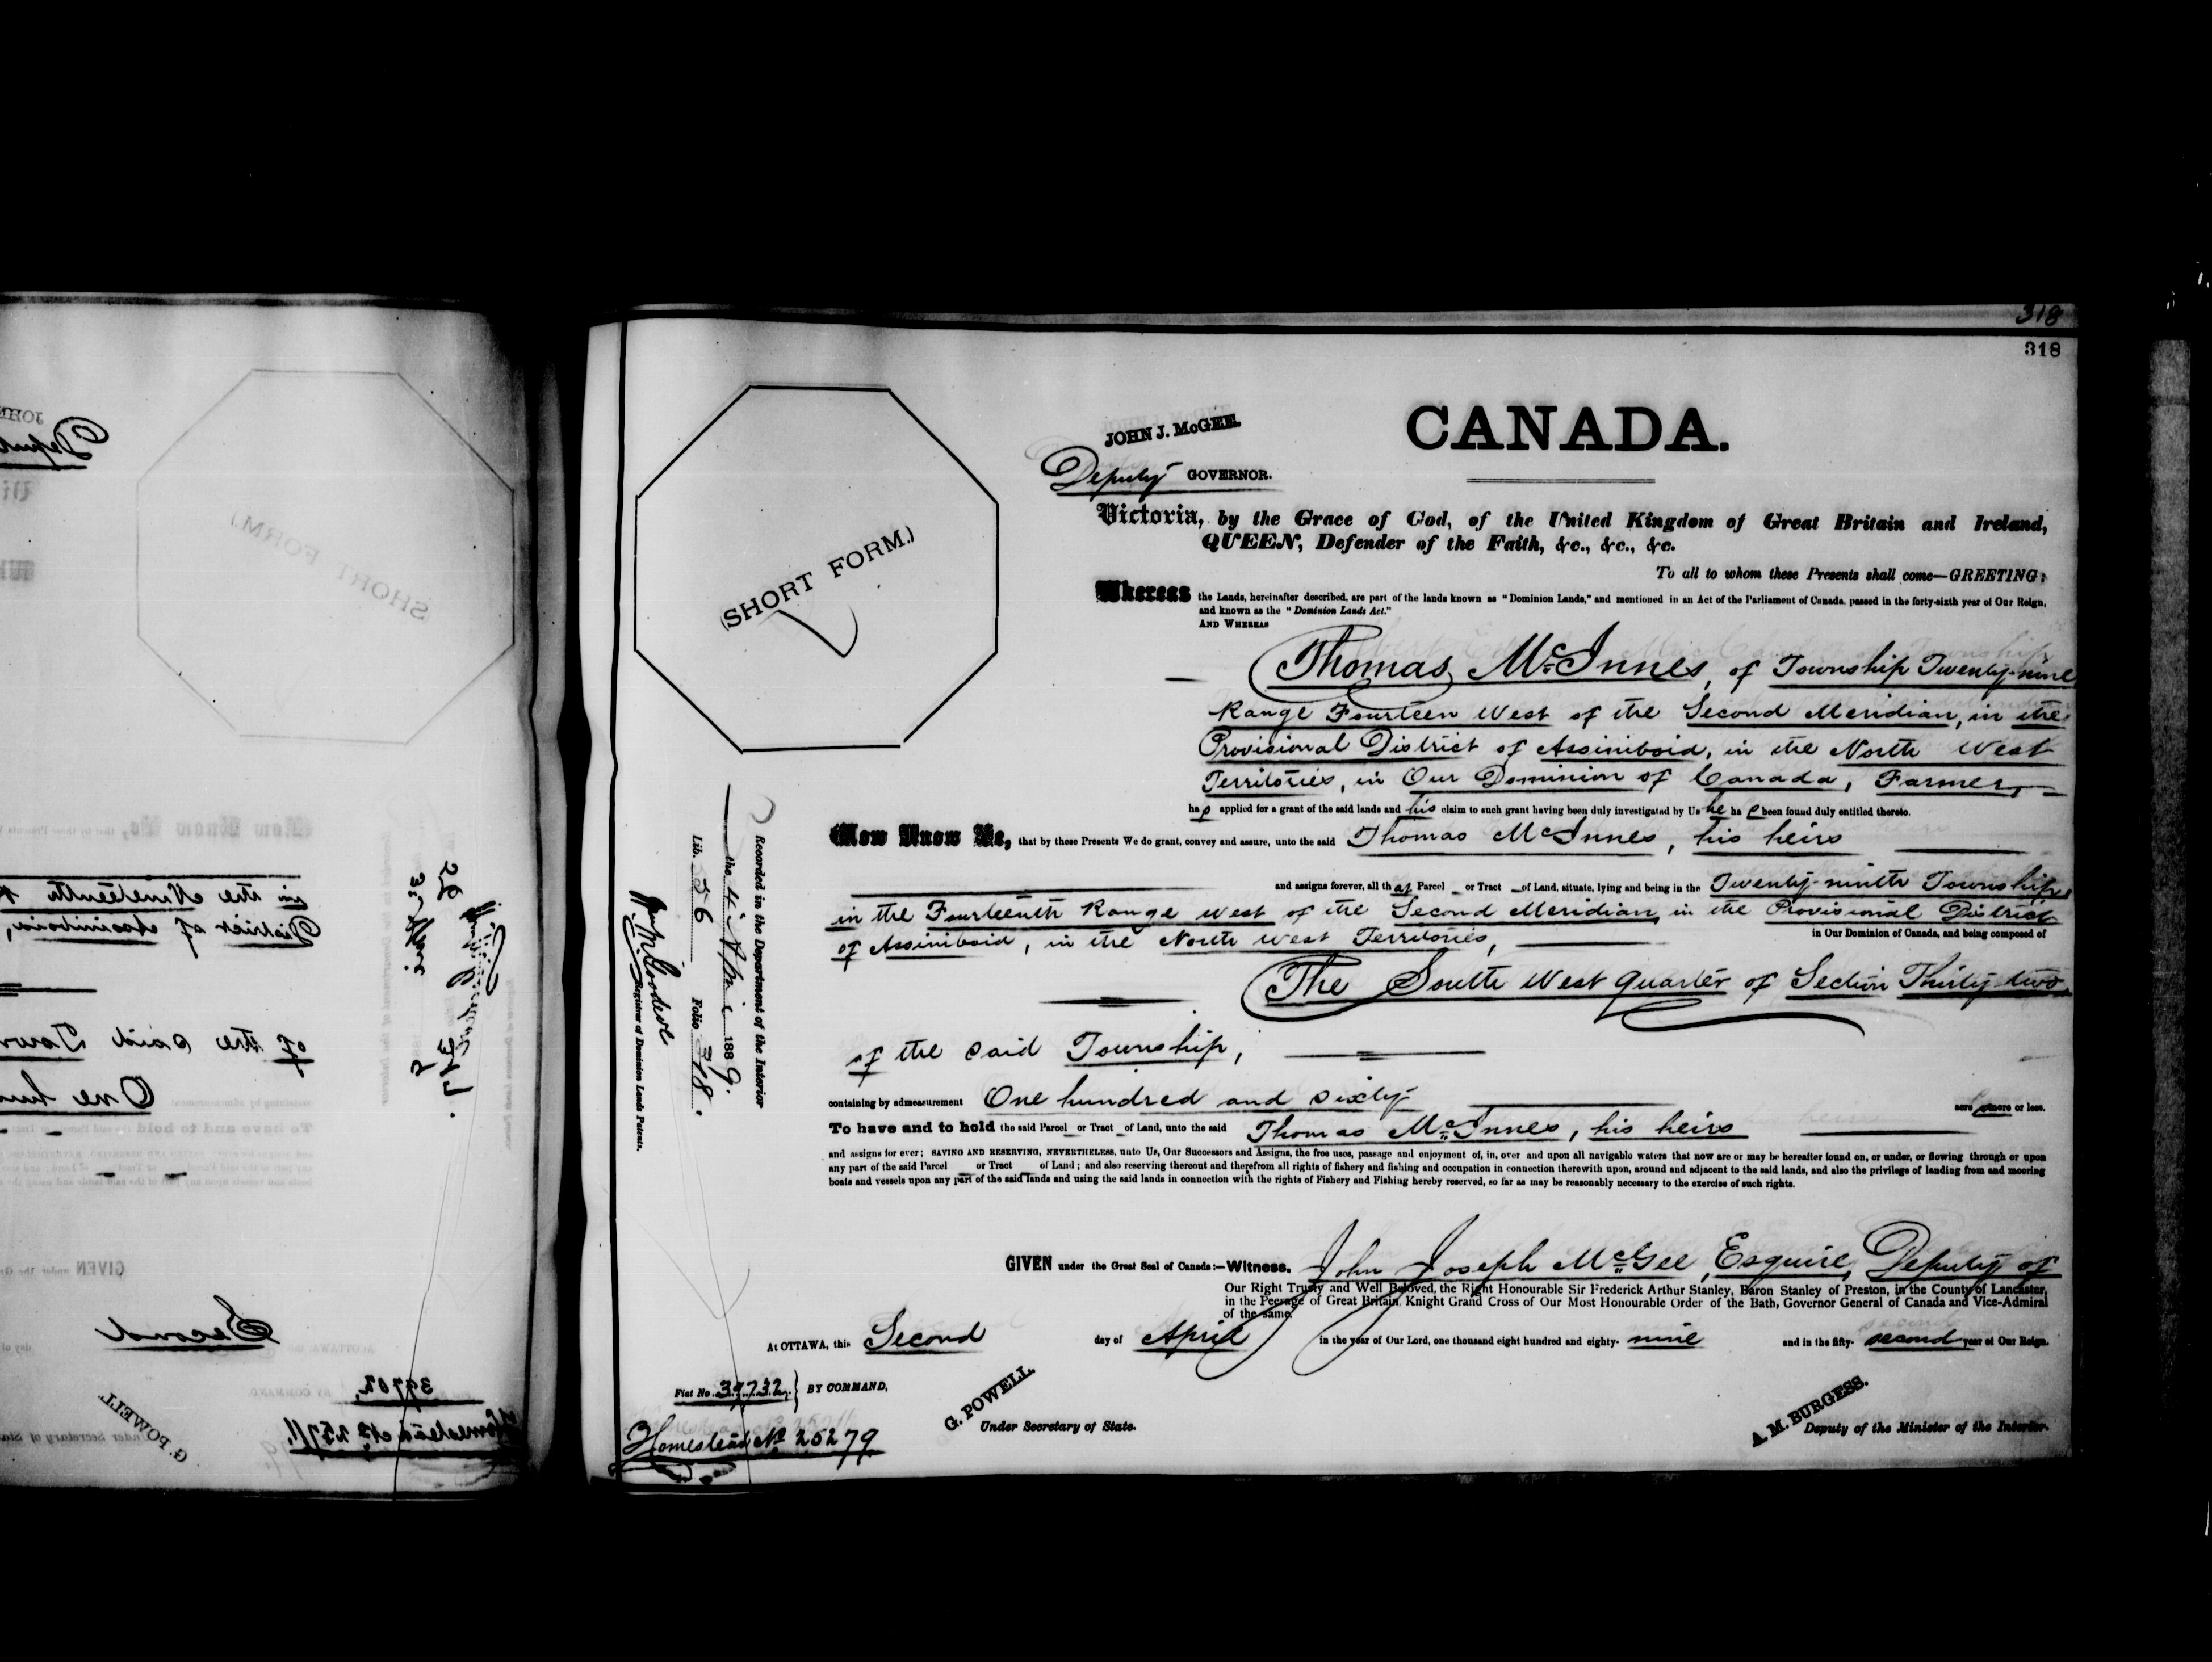 318
318
CANADA.
JOHN J. McGEE.
Deputy GOVERNOR.
(SHORT FORM.)
Victoria, by the Grace of God, of the United Kingdom of Great Britain and Ireland,
QUEEN, Defender of the Faith, &c., &c., &c.
To all to whom these Presents shall come—GREETING:
Whereas the Lands, hereinafter described, are part of the lands known as "Dominion Lands," and mentioned in an Act of the Parliament of Canada, passed in the forty-sixth year of Our Reign,
and known as the "Dominion Lands Act."
AND WHEREAS
Thomas McInnes, of Township Twenty-nine
Range Fourteen West of the Second Meridian, in the
Provisional District of Assiniboia, in the North West
Territories, in Our Dominion of Canada, Farmer,
has applied for a grant of the said lands and his claim to such grant having been duly investigated by Us he has been found duly entitled thereto.
Now Know Ye, that by these Presents We do grant, convey and assure, unto the said Thomas McInnes, his heirs
and assigns forever, all that Parcel or Tract of Land, situate, lying and being in the Twenty-ninth Township
in the Fourteenth Range West of the Second Meridian, in the Provisional District
of Assiniboia, in the North West Territories,
in Our Dominion of Canada, and being composed of
The South West quarter of Section Thirty-two,
of the said Township,
containing by admeasurement One hundred and sixty acres more or less.
To have and to hold the said Parcel or Tract of Land, unto the said Thomas McInnes, his heirs
and assigns for ever; SAVING AND RESERVING, NEVERTHELESS, unto Us, Our Successors and Assigns, the free uses, passage and enjoyment of, in, over and upon all navigable waters that now are or may be hereafter found on, or under, or flowing through or upon
any part of the said Parcel or Tract of Land; and also reserving thereout and therefrom all rights of fishery and fishing and occupation in connection therewith upon, around and adjacent to the said lands, and also the privilege of landing from and mooring
boats and vessels upon any part of the said lands and using the said lands in connection with the rights of Fishery and Fishing hereby reserved, so far as may be reasonably necessary to the exercise of such rights.
GIVEN under the Great Seal of Canada:—Witness, John Joseph McGee, Esquire, Deputy of
Our Right Trusty and Well Beloved, the Right Honourable Sir Frederick Arthur Stanley, Baron Stanley of Preston, in the County of Lancaster,
in the Peerage of Great Britain, Knight Grand Cross of Our Most Honourable Order of the Bath, Governor General of Canada and Vice-Admiral
of the same.
At OTTAWA, this Second day of April in the year of Our Lord, one thousand eight hundred and eighty-nine and in the fifty-second year of Our Reign.
Fiat No. 39732. BY COMMAND,
G. POWELL.
Under Secretary of State.
A. M. BURGESS.
Deputy of the Minister of the Interior.
Homestead No 25279
Recorded in the Department of the Interior
the 4th April 1889.
Lib. 56 Folio 318.
Registrar of Dominion Lands Patents.
in the Nineteenth
District of Assiniboia,
of the said Town
One hun
GIVEN
Second
39702
Homestead No 25711.
G. POWELL
Under Secretary of Sta